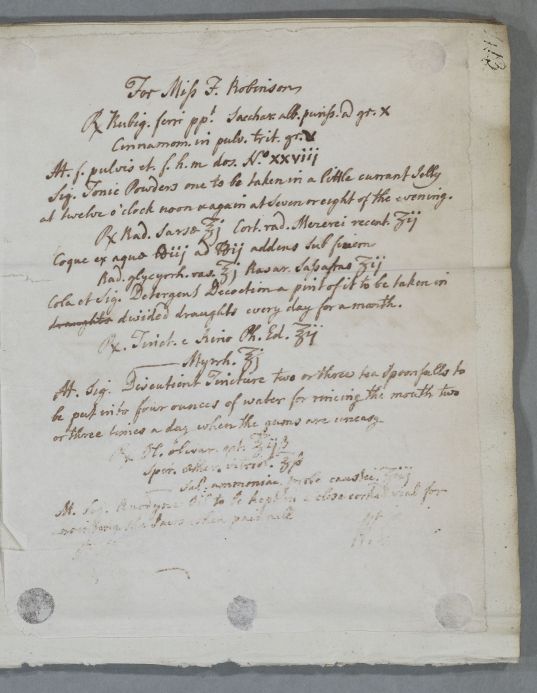 For Miss F. Robinson
℞ Rubig. ferri ppt. Sacchar. alb. puriss. a̅ gr. x
Cinnamom. in pulv. trit. gr. v
M. f. pulvis et. f. h. m dos. No. xxviij
Sig. Tonic Powders one to be taken in a little currant Jelly
at twelve o'clock noon & again at seven or eight of the evening.
℞ Rad. Sarsæ ℥j Cort. rad. Mezerei recent. ʒij
Coque ex aquæ ℔iij ad ℔ij addens sub finem
Rad. glycyrrh. ras. ℥j Rasur. Sassafras ʒij
Cola et Sig. Detergent Decoction a pint of it to be taken in
draughts divided draughts every day for a month.
℞. Tinct. e Kino Ph. Ed. ℥ij
Myrrh. ℥j
M. Sig. Discutient Tincture two or three tea spoonfulls to
be put into four ounces of water for rincing the mouth two
or three times a day when the gums are uneasy
℞ Ol. olivar. opt.
Spir. æther. vitriol.
Sal. ammoniac.
M. Sig. Anodyne Oil to be kept in a close corked vial for
the Jaws when pained